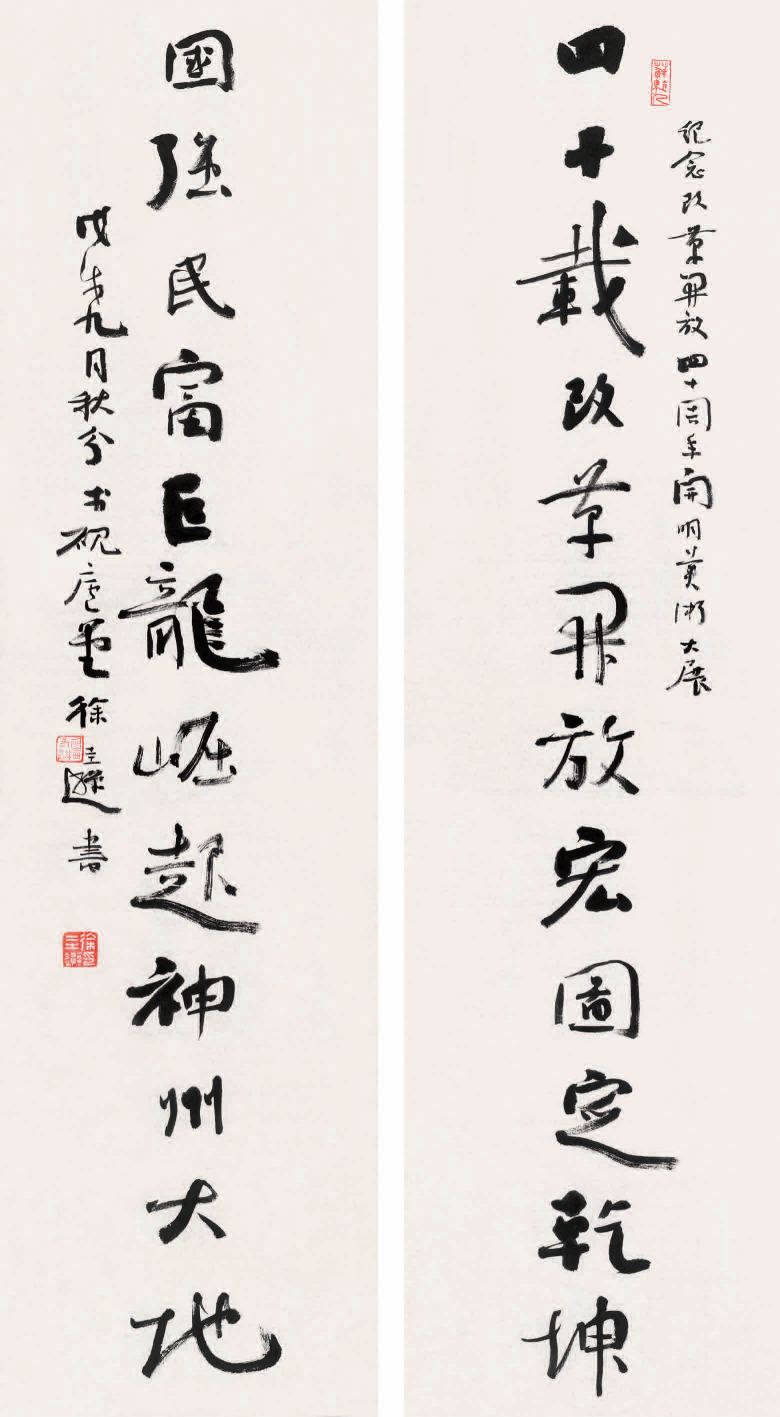 紀念改革開放四十周年開明美術大展
四十載改革開放宏圖定乾坤
國強民富巨龍崛起神州大地
戊戌九月秋分 硯廬 徐圭遜書